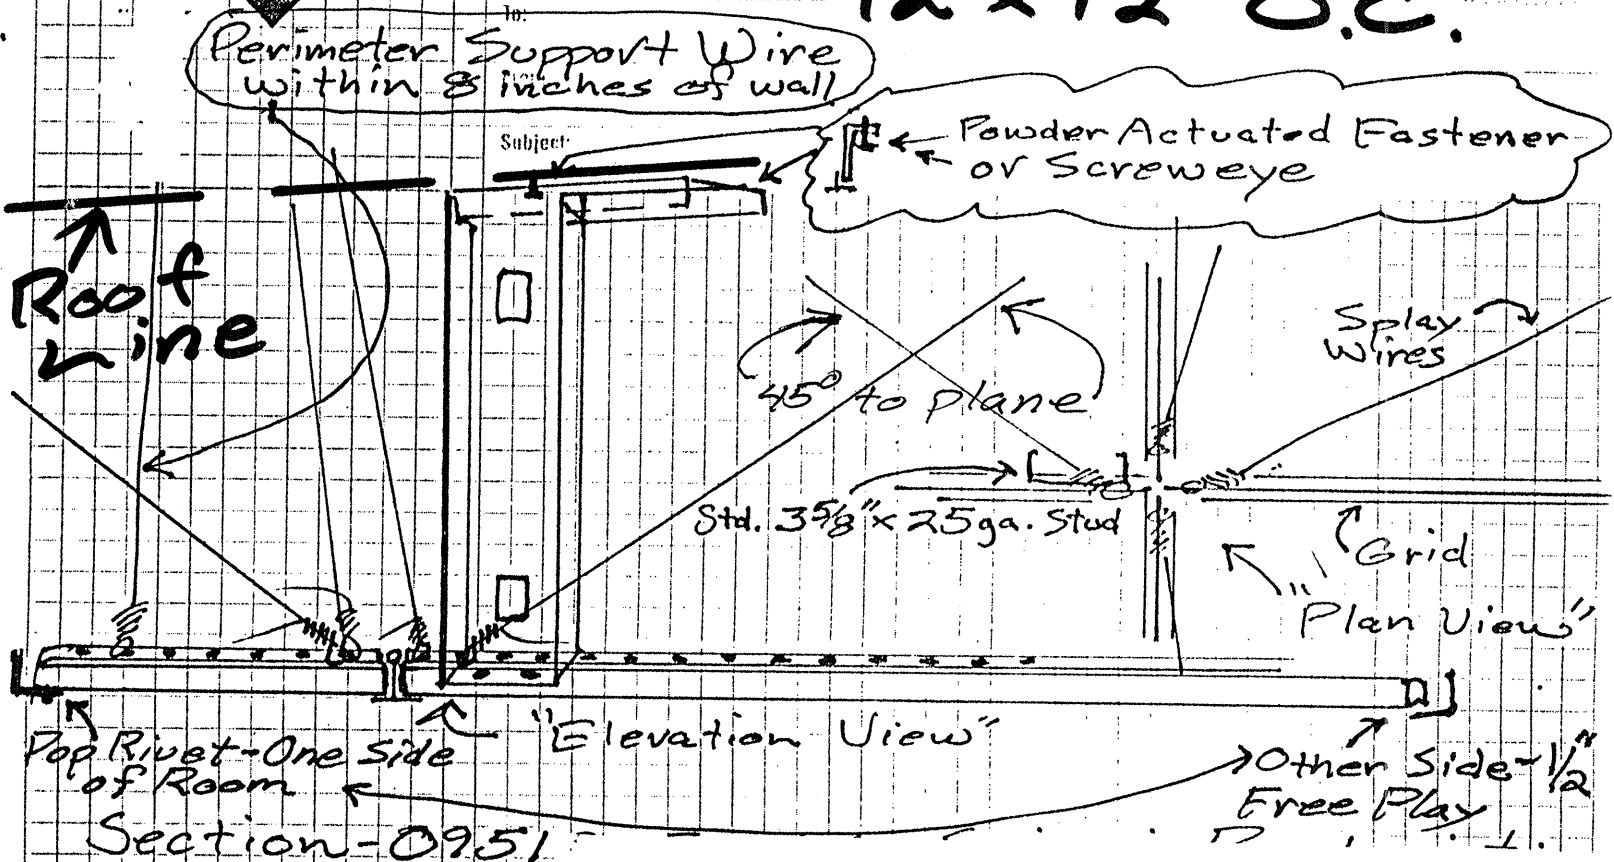 12 x 12 O.C.
To:
Perimeter Support Wire
within 8 inches of wall
Subject:
Powder Actuated Fastener
or Screweye
Roof
Line
Splay
Wires
45° to plane
Std. 3 5/8" x 25ga. Stud
Grid
"Plan View"
"Elevation View"
Pop Rivet-One Side
of Room
Other Side-1/2"
Free Play
Section-0951